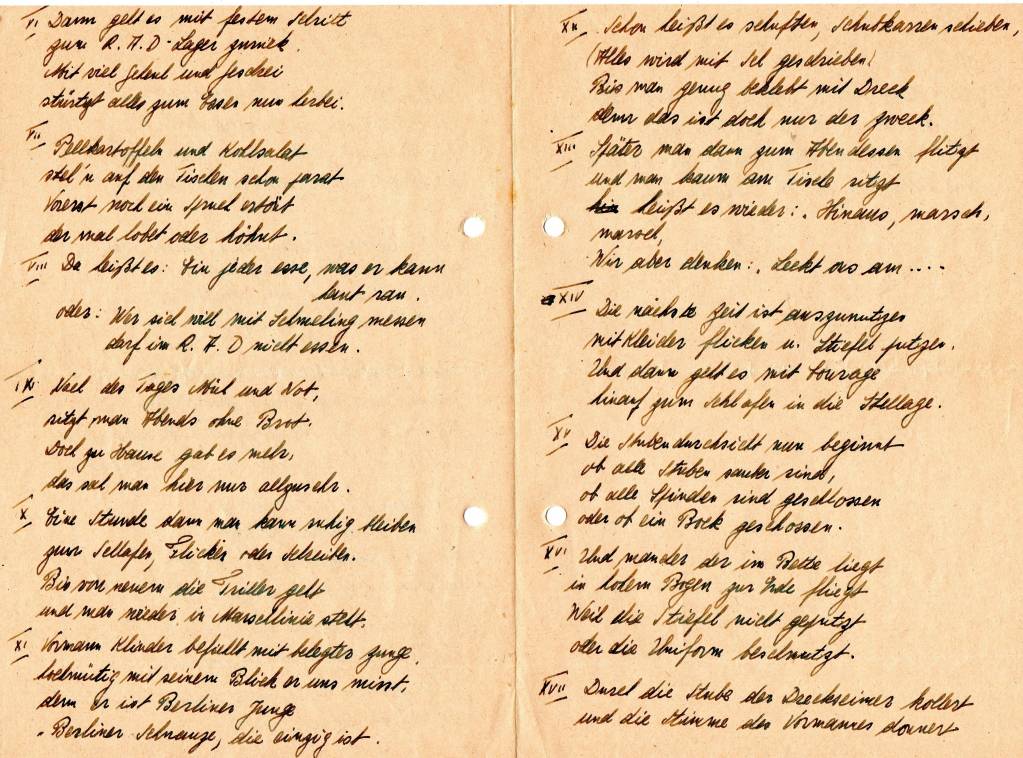 VI. Dann geht es mit festem Schritt
zum R.A.D-Lager zurück.
Mit viel Geheul und Geschrei
stürtzt alles zum Essen nun herbei.
VII Pellkartoffeln und Kohlsalat
steh'n auf den Tischen schon parat
Vorerst noch ein Spruch ertönt
der mal lobet oder höhnt.
VIII Da heißt es: Ein jeder esse, was er kann
haut ran.
oder: Wer sich will mit Schmeling messen
darf im R.A.D nicht essen.
IX. Nach des Tages Müh und Not,
sitzt man Abends ohne Brot.
Doch zu Hause gab es mehr,
das sah man hier nur allzusehr.
X Eine Stunde dann man kann ruhig bleiben
zum Schlafen, Flicken oder Schreiben.
Bis von neuem die Triller geht
und man wieder in Marschlinie steht.
XI Vormann Klinder befiehlt mit belegter Zunge,
hochmütig mit seinem Blick er uns misst,
denn er ist Berliner Junge
"Berliner Schnauze, die einzig ist.
XII. Schon heißt es schuften, Schubkarren schieben,
(Alles wird mit Sch geschrieben)
Bis man genug beklebt mit Dreck
denn das ist doch nur der Zweck.
XIII Später man dann zum Abendessen flitzt
und man kaum am Tische sitzt
heißt es wieder: "Hinaus, marsch,
marsch,
Wir aber denken: "Leckt uns am ....
XIV Die nächste Zeit ist auszunutzen
mit Kleider flicken u. Stiefel putzen.
Und dann geht es mit Courage
hinauf zum Schlafen in die Stellage.
XV Die Stubendurchsicht nun beginnt
ob alle Stuben sauber sind,
ob alle Spinden sind geschlossen
oder ob ein Bock geschossen.
XVI Und mancher der im Bette liegt
in hohem Bogen zur Erde fliegt
Weil die Stiefel nicht geputzt
oder die Uniform beschmutzt.
XVII Durch die Stube der Dreckseimer kollert
und die Stimme des Vormannes donnert